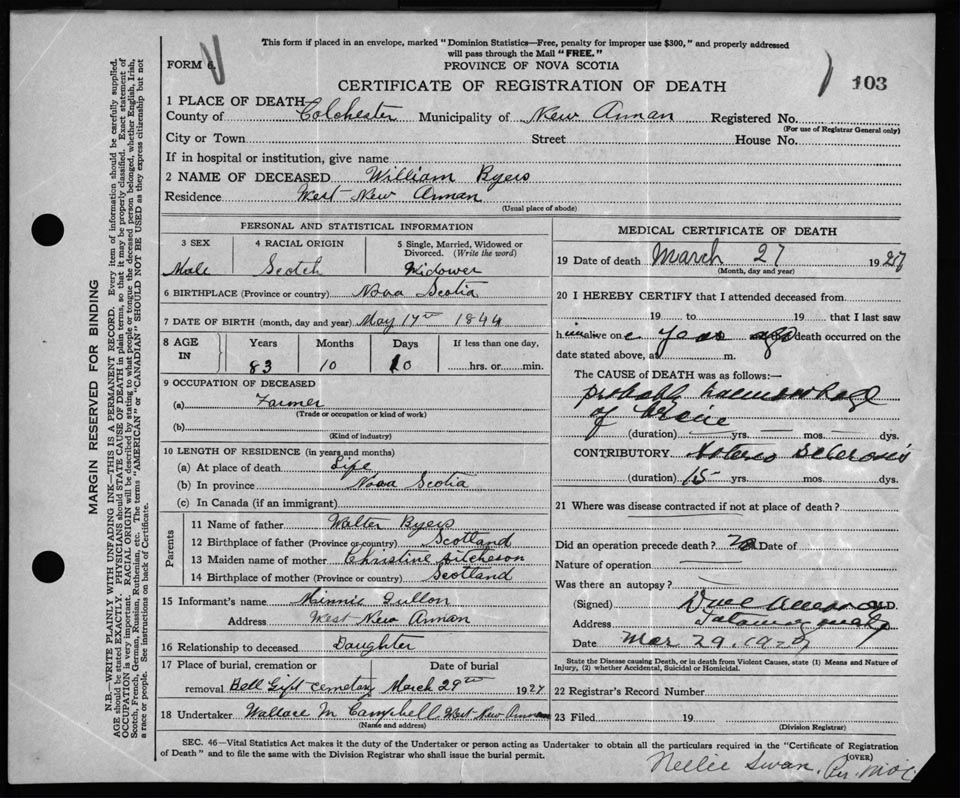 This form if placed in an envelope, marked "Dominion Statistics—Free, penalty for improper use $300," and properly addressed
will pass through the Mail "FREE."
FORM 6.
PROVINCE OF NOVA SCOTIA
CERTIFICATE OF REGISTRATION OF DEATH
103
MARGIN RESERVED FOR BINDING
N.B.—WRITE PLAINLY WITH UNFADING INK—THIS IS A PERMANENT RECORD. Every item of information should be carefully supplied.
AGE should be stated EXACTLY. PHYSICIANS should STATE CAUSE OF DEATH in plain terms, so that it may be properly classified. Exact statement of
OCCUPATION is very important. RACIAL ORIGIN will be described by stating to what people or tongue the deceased person belonged, whether English, Irish,
Scotch, French, German, Russian, Ruthenian, etc. The terms "AMERICAN" or "CANADIAN" SHOULD NOT BE USED as they express citizenship but not
a race or people. See instructions on back of Certificate.
1 PLACE OF DEATH
County of Colchester Municipality of New Annan Registered No.
(For use of Registrar General only)
City or Town Street House No.
If in hospital or institution, give name
2 NAME OF DECEASED William Byers
Residence West New Annan
(Usual place of abode)
PERSONAL AND STATISTICAL INFORMATION
3 SEX 4 RACIAL ORIGIN 5 Single, Married, Widowed or
Divorced. (Write the word)
Male Scotch Widower
6 BIRTHPLACE (Province or country) Nova Scotia
7 DATE OF BIRTH (month, day and year) May 17th 1844
8 AGE IN Years Months Days If less than one day,
83 10 10 hrs. or min.
9 OCCUPATION OF DECEASED
(a) Farmer
(Trade or occupation or kind of work)
(b)
(Kind of industry)
10 LENGTH OF RESIDENCE (in years and months)
(a) At place of death Life
(b) In province Nova Scotia
(c) In Canada (if an immigrant)
Parents
11 Name of father Walter Byers
12 Birthplace of father (Province or country) Scotland
13 Maiden name of mother Christine Aitcheson
14 Birthplace of mother (Province or country) Scotland
15 Informant's name Minnie
Address West New Annan
16 Relationship to deceased Daughter
17 Place of burial, cremation or Date of burial
removal Bell Gift cemetery March 29th 1927
18 Undertaker Wallace M Campbell West New Annan
(Name and address)
MEDICAL CERTIFICATE OF DEATH
19 Date of death March 27 1927
(Month, day and year)
20 I HEREBY CERTIFY that I attended deceased from
19 to 19 that I last saw
h im alive on year ago death occurred on the
date stated above, at m.
The CAUSE of DEATH was as follows:—
probably haemorrhage
of
(duration) yrs. mos. dys.
CONTRIBUTORY Arterio Sclerosis
(duration) 15 yrs. mos. dys.
21 Where was disease contracted if not at place of death?
Did an operation precede death? No Date of
Nature of operation
Was there an autopsy?
(Signed) M.D.
Address Tatamagouche
Date Mar 29. 1927
State the Disease causing Death, or in death from Violent Causes, state (1) Means and Nature of
Injury, (2) whether Accidental, Suicidal or Homicidal.
22 Registrar's Record Number
23 Filed 19
(Division Registrar)
SEC. 46—Vital Statistics Act makes it the duty of the Undertaker or person acting as Undertaker to obtain all the particulars required in the "Certificate of Registration
of Death" and to file the same with the Division Registrar who shall issue the burial permit.
(OVER)
Nellie Swan